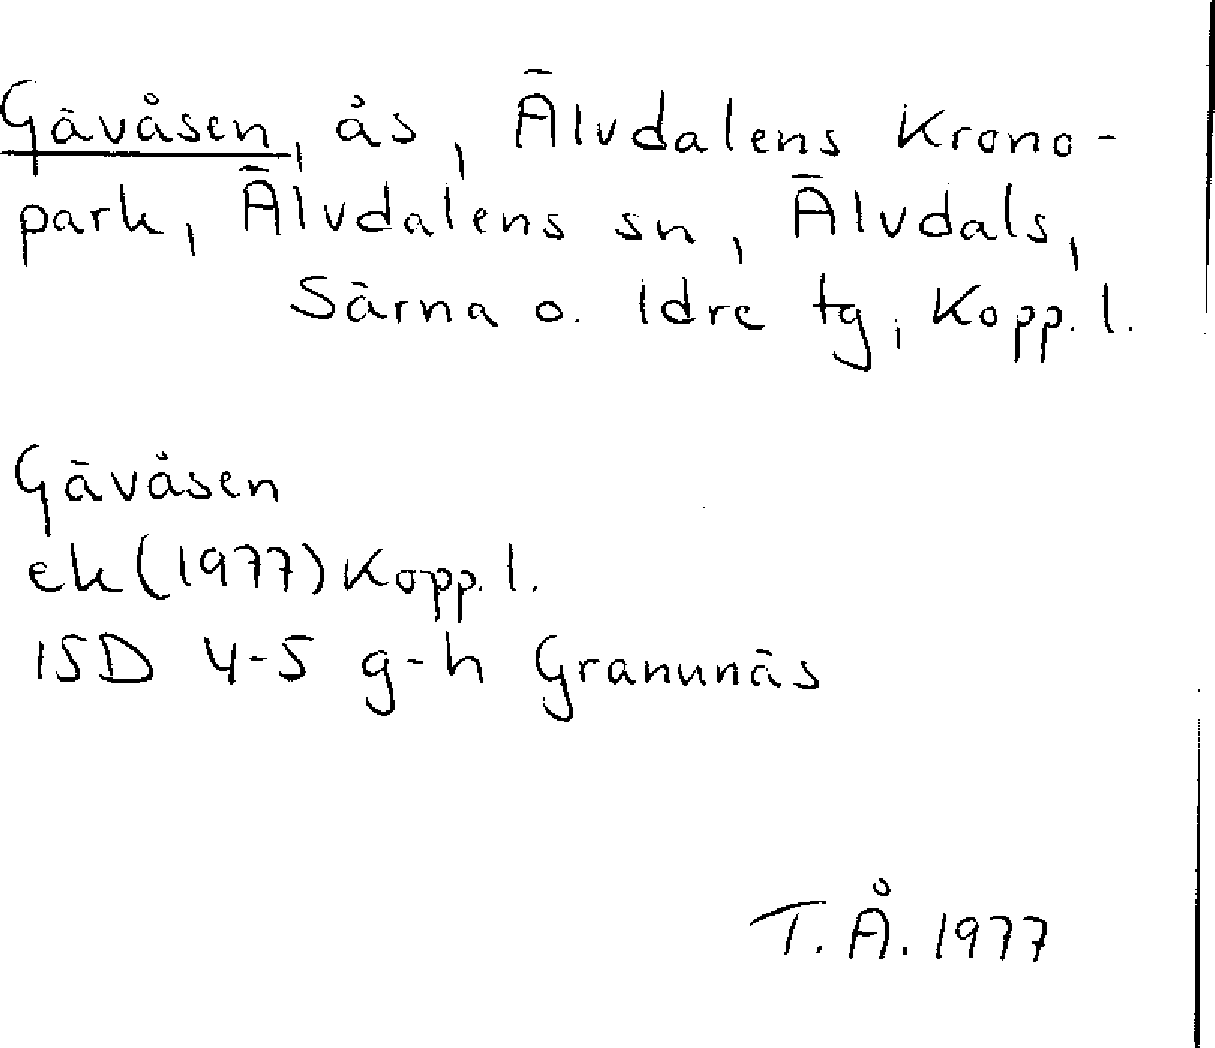 Gävåsen, ås, Älvdalens Krono-
park, Älvdalens sn, Älvdals,
Särna o. Idre tg, Kopp. l.
Gävåsen
ek (1977) Kopp. l.
15D 4-5 g-h Granunäs
T. Å. 1977